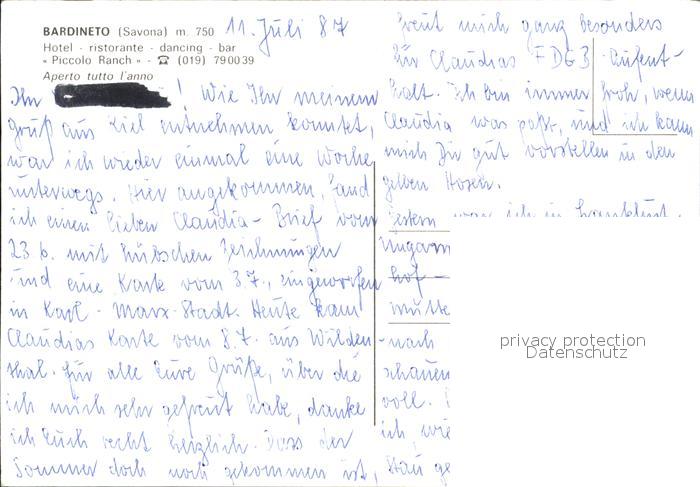 BARDINETO (Savona) m. 750
Hotel - ristorante - dancing - bar
« Piccolo Ranch » - ☎ (019) 790039
Aperto tutto l'anno
11. Juli 87
Ihr ! Wie Ihr meinem
Gruß aus Kiel entnehmen konntet,
war ich wieder einmal eine Woche
unterwegs. Hier angekommen, fand
ich einen lieben Claudia-Brief vom
23.6. mit hübschen Zeichnungen
und eine Karte vom 3.7., eingeworfen
in Karl-Marx-Stadt. Heute kam
Claudias Karte vom 8.7. aus Wilden-
thal. Für alle Eure Grüße, über die
ich mich sehr gefreut habe, danke
ich Euch recht herzlich. Dass der
Sommer doch noch gekommen ist,
freut mich ganz besonders
für Claudias FDGB-Aufent-
halt. Ich bin immer froh, wenn
Claudia was paßt, und ich kann
mich gut vorstellen in den
gelben Hosen.
Gestern war ich in Frankfurt.
Ungarn
hof
mußte
nach
schauen
voll.
ich, wie
Stau ge
privacy protection
Datenschutz